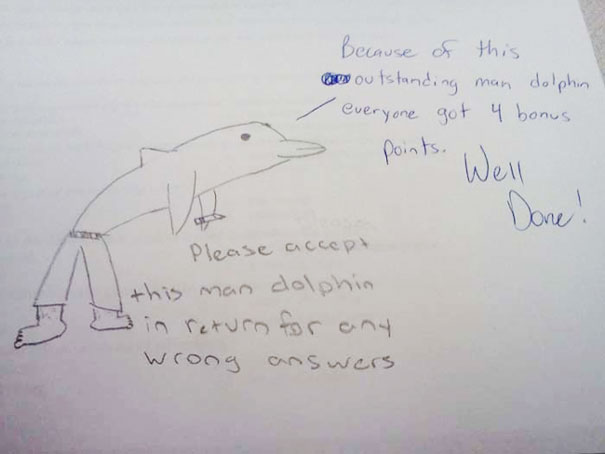 Because of this
outstanding man dolphin
everyone got 4 bonus
points.
Well
Done!
Please accept
this man dolphin
in return for any
wrong answers